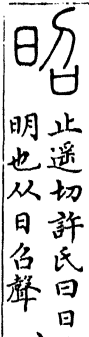 昭
止遥切許氏曰日
明也从日召聲